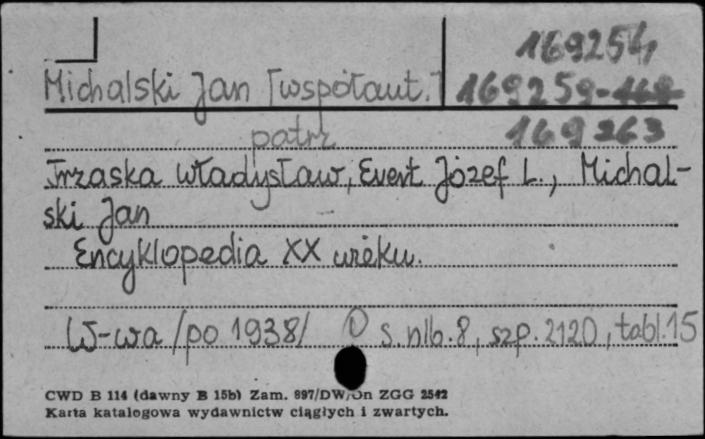 169254
Michalski Jan [współaut.] 169259-
patrz 169263
Trzaska Władysław, Evert Józef L., Michal-
ski Jan
Encyklopedia XX wieku.
W-wa /po 1938/ s. nlb. 8, szp. 2120, tabl. 15
CWD B 114 (dawny B 15b) Zam. 897/DW/On ZGG 2542
Karta katalogowa wydawnictw ciągłych i zwartych.